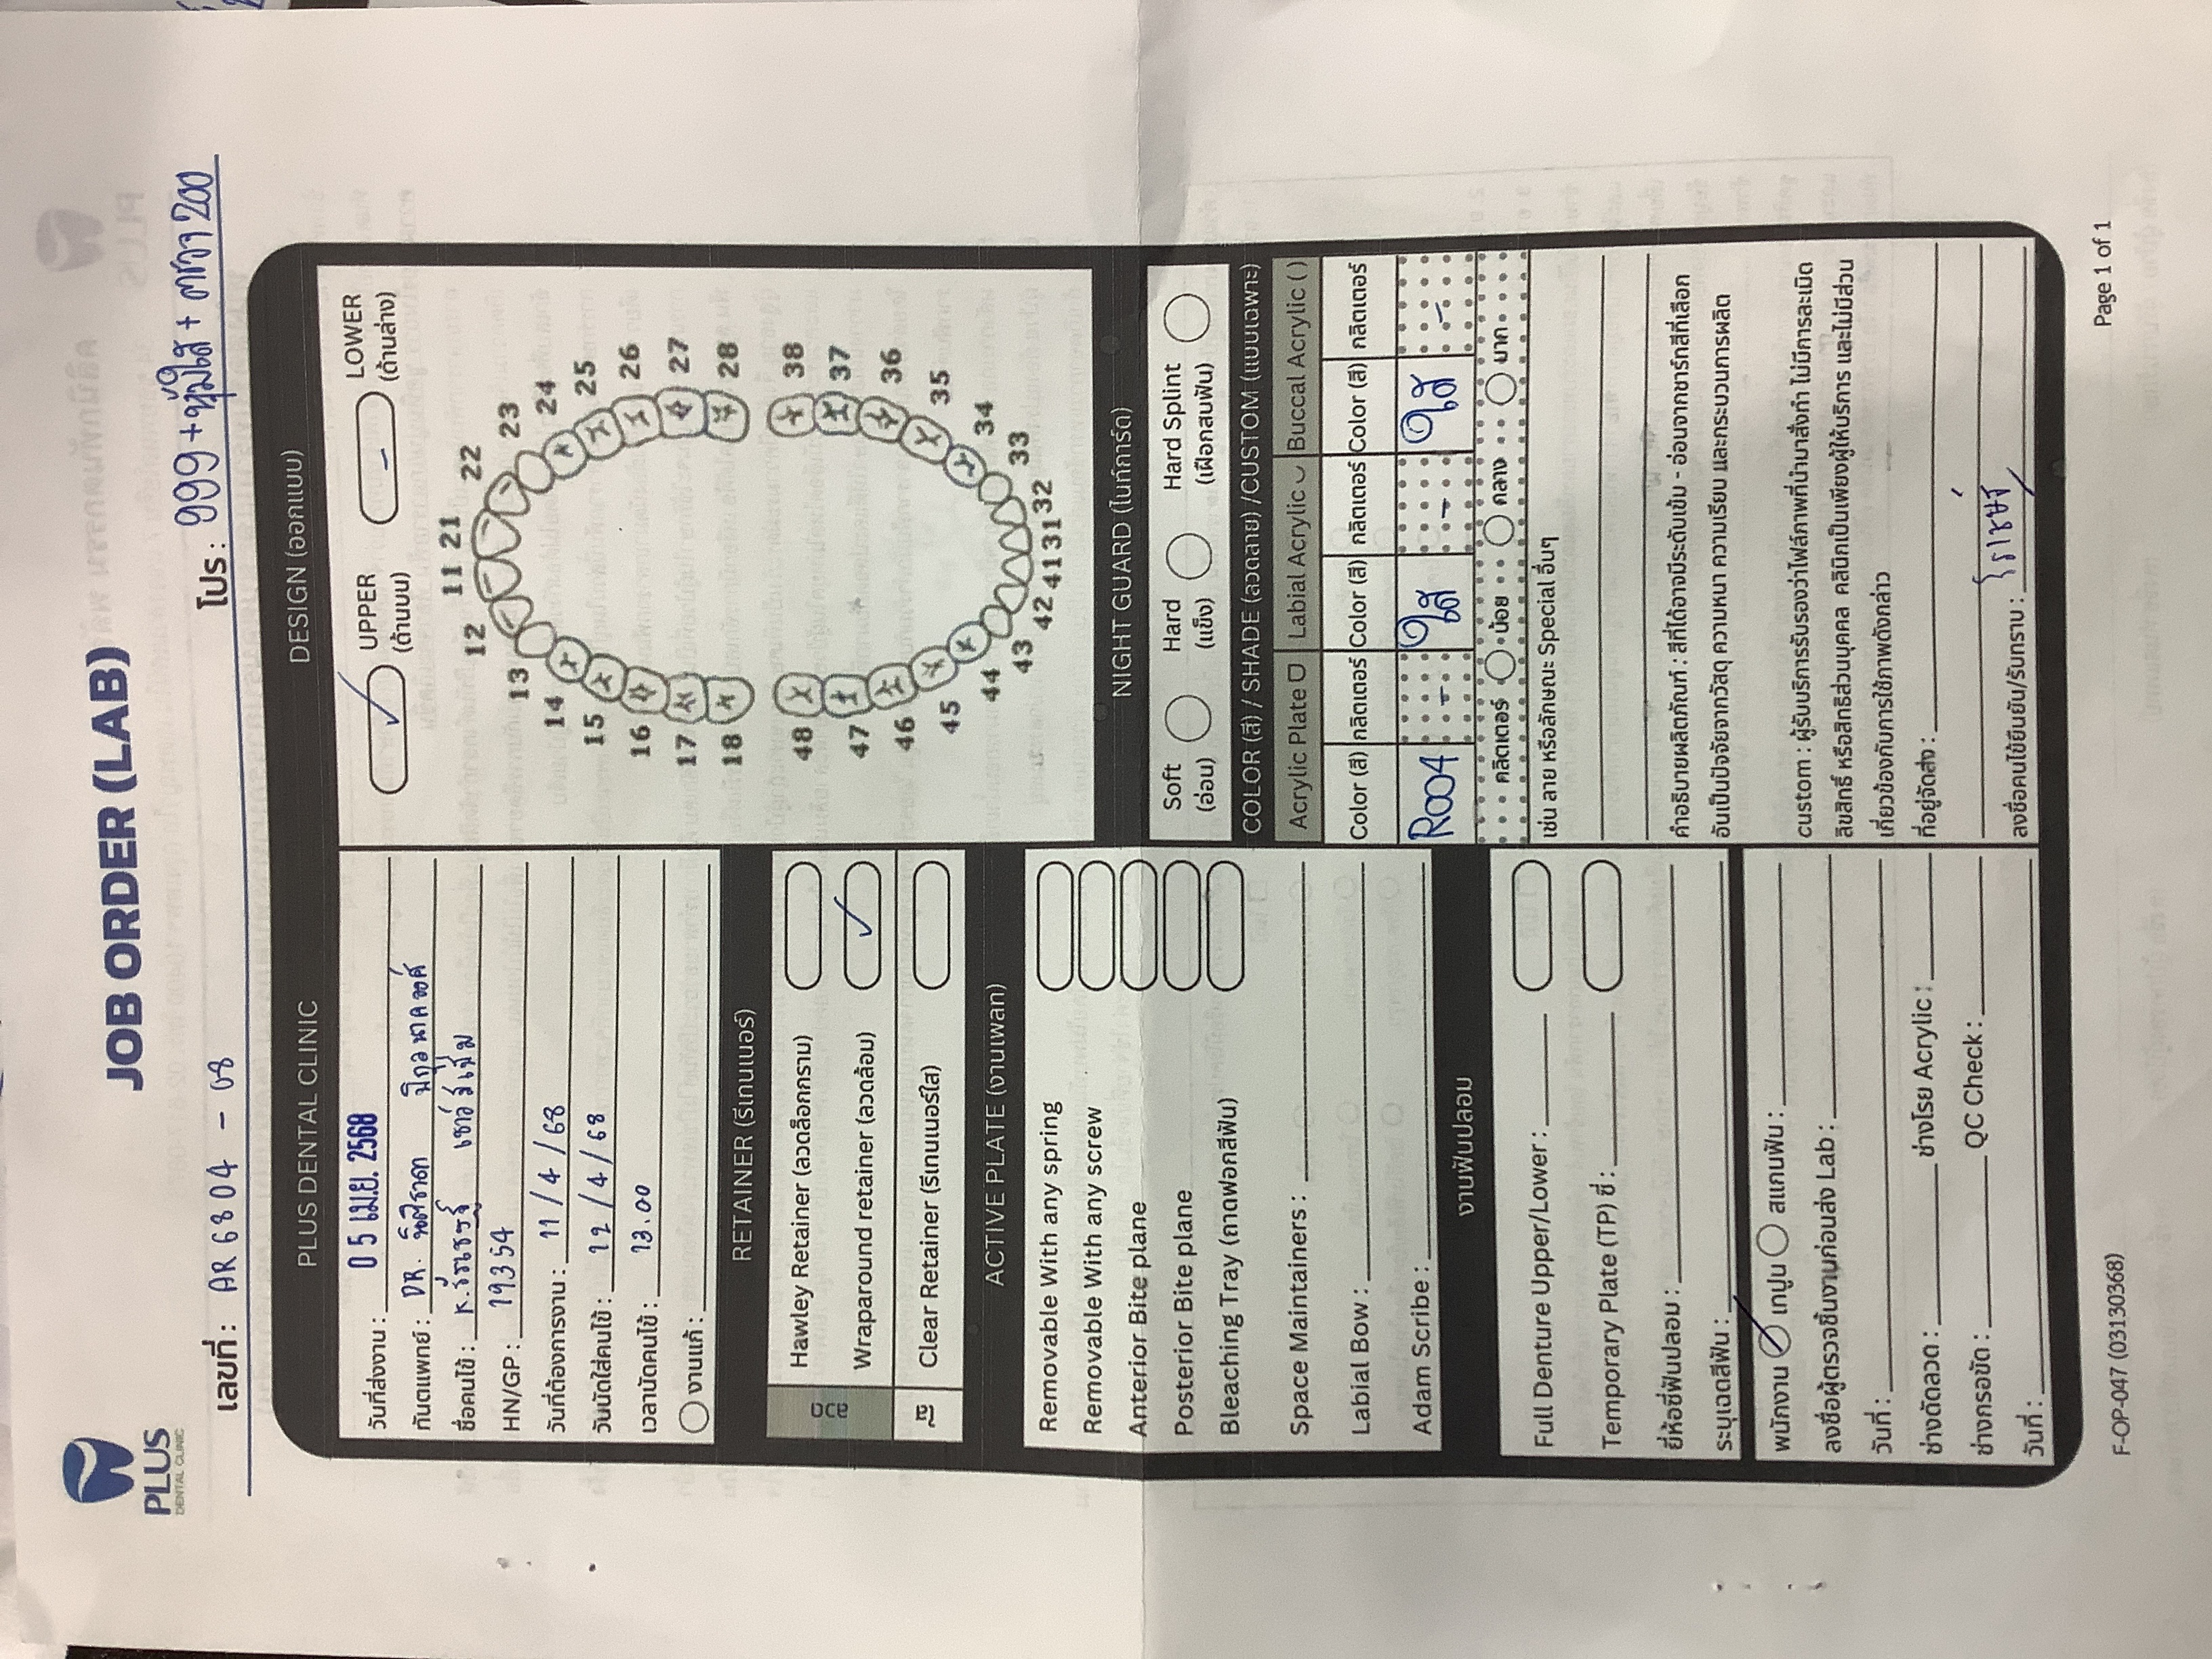 PLUS
DENTAL CLINIC
JOB ORDER (LAB)
เลขที่ : AR 6804 - 08
โปร : 999 + หุ้มใส + ตรวจ 200
PLUS DENTAL CLINIC
วันที่ส่งงาน : 05 เม.ย. 2568
ทันตแพทย์ : DR.
ชื่อคนไข้ : K.
HN/GP : 19354
วันที่ต้องการงาน : 11/4/68
วันนัดใส่คนไข้ : 12/4/68
เวลานัดคนไข้ : 13.00
งานแก้ :
RETAINER (รีเทนเนอร์)
ลวด
Hawley Retainer (ลวดล็อกกราม)
Wraparound retainer (ลวดล้อม)
ใส
Clear Retainer (รีเทนเนอร์ใส)
ACTIVE PLATE (งานเพลท)
Removable With any spring
Removable With any screw
Anterior Bite plane
Posterior Bite plane
Bleaching Tray (ถาดฟอกสีฟัน)
Space Maintainers :
Labial Bow :
Adam Scribe :
งานฟันปลอม
Full Denture Upper/Lower :
Temporary Plate (TP) ซี่ :
ยี่ห้อซี่ฟันปลอม :
ระบุเฉดสีฟัน :
พนักงาน เทปูน สแกนฟัน :
ลงชื่อผู้ตรวจชิ้นงานก่อนส่ง Lab :
วันที่ :
ช่างดัดลวด : ช่างโรย Acrylic :
ช่างกรอขัด : QC Check :
วันที่ :
DESIGN (ออกแบบ)
UPPER
(ด้านบน)
LOWER
(ด้านล่าง)
11 21
12 22
13 23
14 24
15 25
16 26
17 27
18 28
48 38
47 37
46 36
45 35
44 34
43 33
42 41 31 32
NIGHT GUARD (ไนท์การ์ด)
Soft
(อ่อน)
Hard
(แข็ง)
Hard Splint
(เฝือกสบฟัน)
COLOR (สี) / SHADE (ลวดลาย) /CUSTOM (แบบเฉพาะ)
Acrylic Plate Labial Acrylic Buccal Acrylic ( )
Color (สี) กลิตเตอร์ Color (สี) กลิตเตอร์ Color (สี) กลิตเตอร์
R004 - ใส - ใส -
คลิตเตอร์ น้อย กลาง มาก
เช่น ลาย หรือลักษณะ Special อื่นๆ
คำอธิบายผลิตภัณฑ์ : สีที่ได้อาจมีระดับเข้ม - อ่อนจากชาร์ทสีที่เลือก
อันเป็นปัจจัยจากวัสดุ ความหนา ความเรียบ และกระบวนการผลิต
custom : ผู้รับบริการรับรองว่าไฟล์ภาพที่นำมาสั่งทำ ไม่มีการละเมิด
ลิขสิทธิ์ หรือสิทธิส่วนบุคคล คลินิกเป็นเพียงผู้ให้บริการ และไม่มีส่วน
เกี่ยวข้องกับการใช้ภาพดังกล่าว
ที่อยู่จัดส่ง :
ลงชื่อคนไข้ยืนยัน/รับทราบ :
F-OP-047 (03130368)
Page 1 of 1